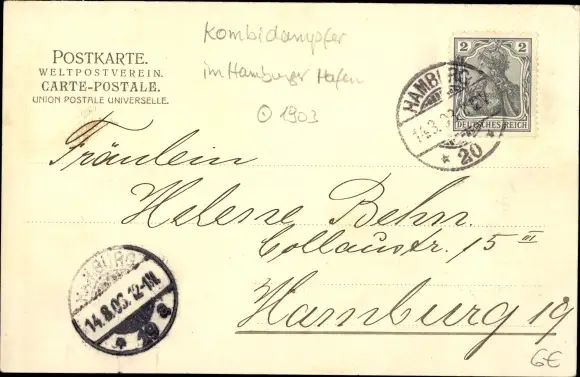 POSTKARTE.
WELTPOSTVEREIN.
CARTE-POSTALE.
UNION POSTALE UNIVERSELLE.
Kombidampfer
im Hamburger Hafen
1903
2 2
DEUTSCHES REICH
HAMBURG
14.3.03
* 20
Fräulein
Helene Behn.
Collaustr. 15 III
Hamburg 19
HAMBURG
14.8.03.12-1N.
* 19 a
6€